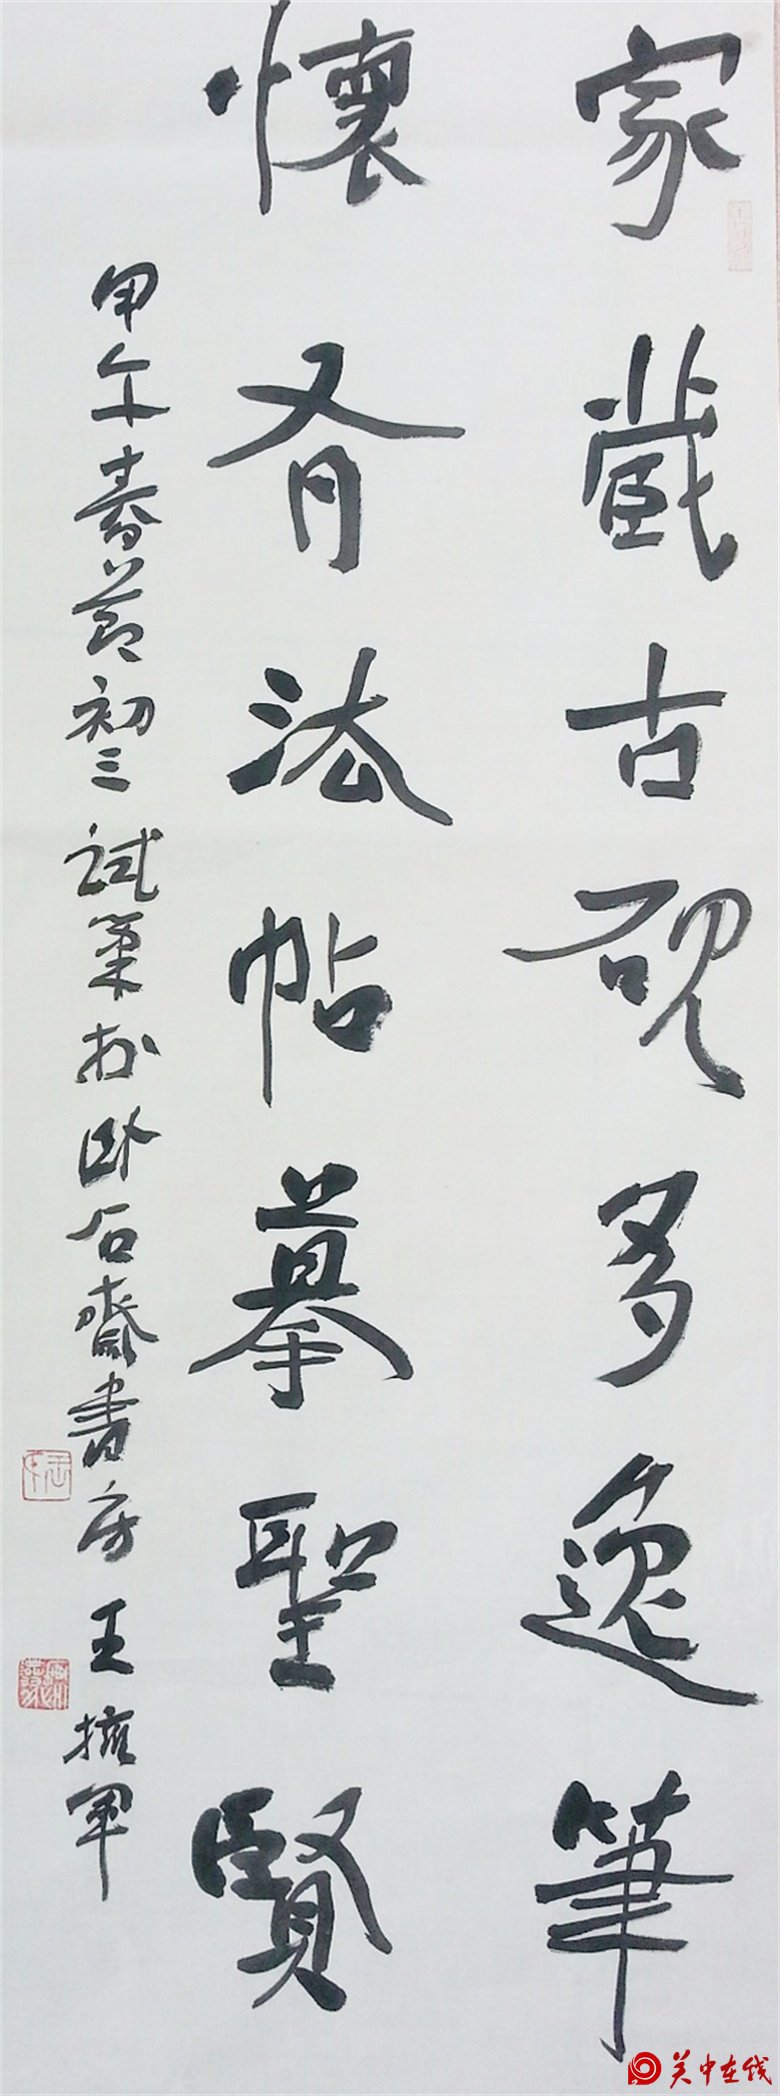 家藏古砚多逸筆
懷有法帖摹聖賢
甲午春节初三试笔於卧石齋書房王擁軍
关中在线